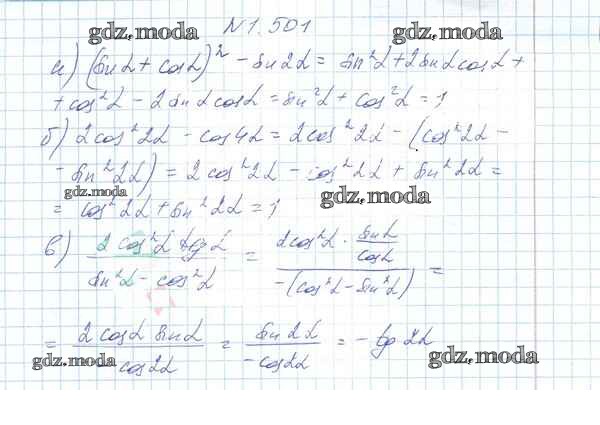 N 1.501
gdz.moda gdz.moda
а) (sin α + cos α)² - sin 2α = sin²α + 2 sin α cos α +
+ cos²α - 2 sin α cos α = sin²α + cos²α = 1
б) 2cos²2α - cos 4α = 2cos²2α - (cos²2α -
- sin²2α) = 2cos²2α - cos²2α + sin²2α =
gdz.moda gdz.moda
= cos²2α + sin²2α = 1
в) (2cos²α tg α)/(sin²α - cos²α) = (2cos²α · (sin α)/(cos α))/(-(cos²α - sin²α)) =
= (2 cos α sin α)/(- cos 2α) = (sin 2α)/(- cos 2α) = - tg 2α
gdz.moda gdz.moda